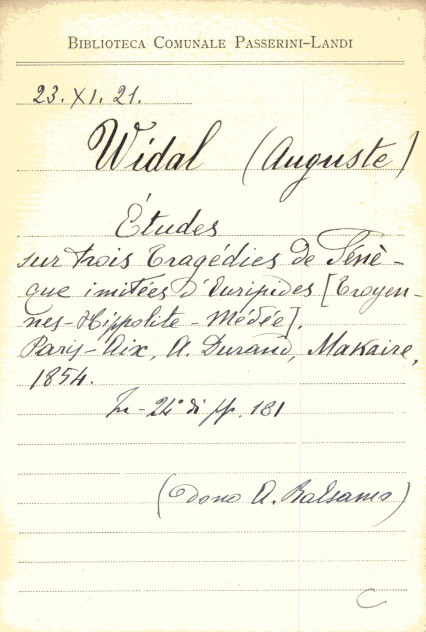 BIBLIOTECA COMUNALE PASSERINI-LANDI
23. XI. 21.
Widal (Auguste)
Études
sur trois Tragédies de Sénè-
que imitées d'Euripides [Troyen-
nes - Hippolite - Médée].
Paris-Aix, A. Durand, Makaire,
1854.
In - 24° di pp. 181
(Dono A. Balsamo)
C